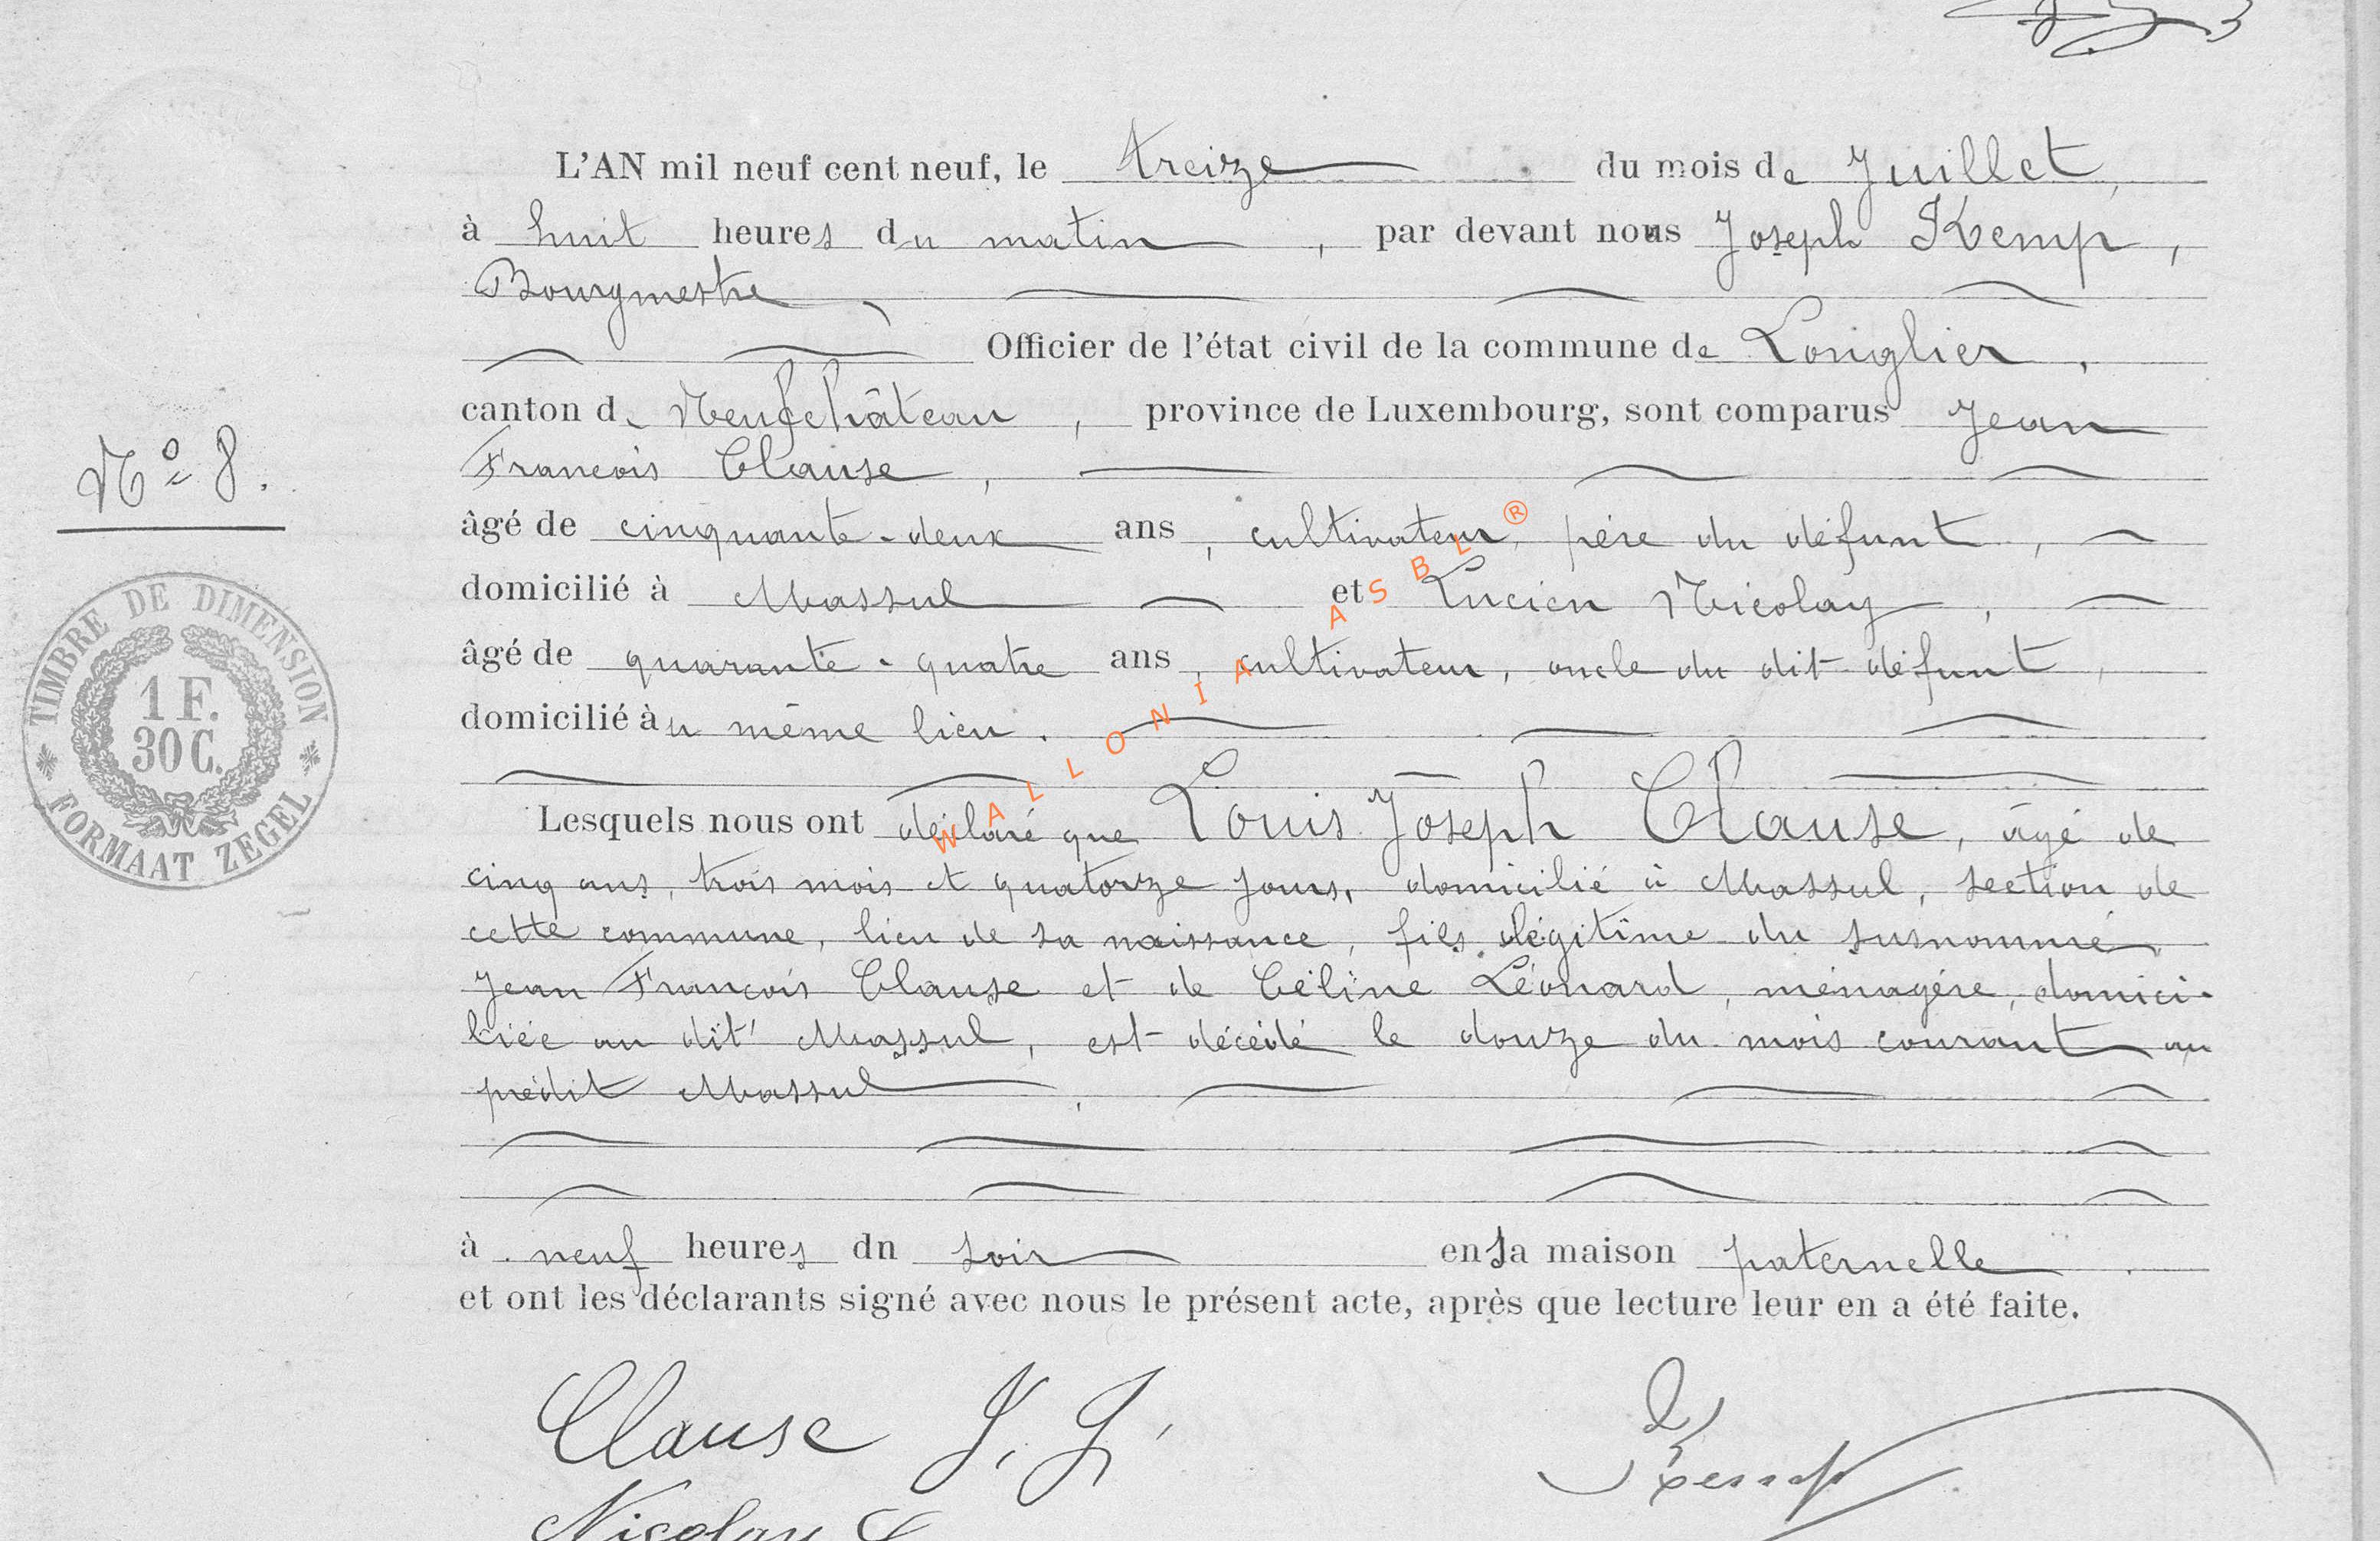 L'AN mil neuf cent neuf, le treize du mois de Juillet,
à huit heures du matin, par devant nous Joseph Kemp,
Bourgmestre,
Officier de l'état civil de la commune de Longlier,
canton de Neufchâteau, province de Luxembourg, sont comparus Jean
François Clause,
âgé de cinquante-deux ans, cultivateur, père du défunt,
domicilié à Massul et Lucien Nicolay,
âgé de quarante-quatre ans, cultivateur, oncle du dit défunt,
domicilié au même lieu.
Lesquels nous ont déclaré que Louis Joseph Clause, âgé de
cinq ans, trois mois et quatorze jours, domicilié à Massul, section de
cette commune, lieu de sa naissance, fils légitime du susnommé
Jean François Clause et de Céline Léonard, ménagère, domici-
liée au dit Massul, est décédé le douze du mois courant au
prédit Massul,
à neuf heures du soir en sa maison paternelle.
et ont les déclarants signé avec nous le présent acte, après que lecture leur en a été faite.
Clause J. F.
Kemp
Nicolay L
Nº 8.
TIMBRE DE DIMENSION
1 F.
30 C.
FORMAAT ZEGEL
WALLONIA ASBL ®